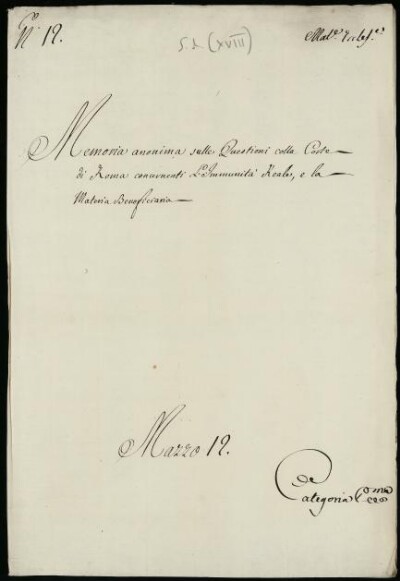 N. 12.
s.d. (XVIII)
Mat.e Eccles.e
Memoria anonima sulle Questioni colla Corte
di Roma concernenti L'Immunità Reale, e la
Materia Beneficiaria
Mazzo 12.
Categoria